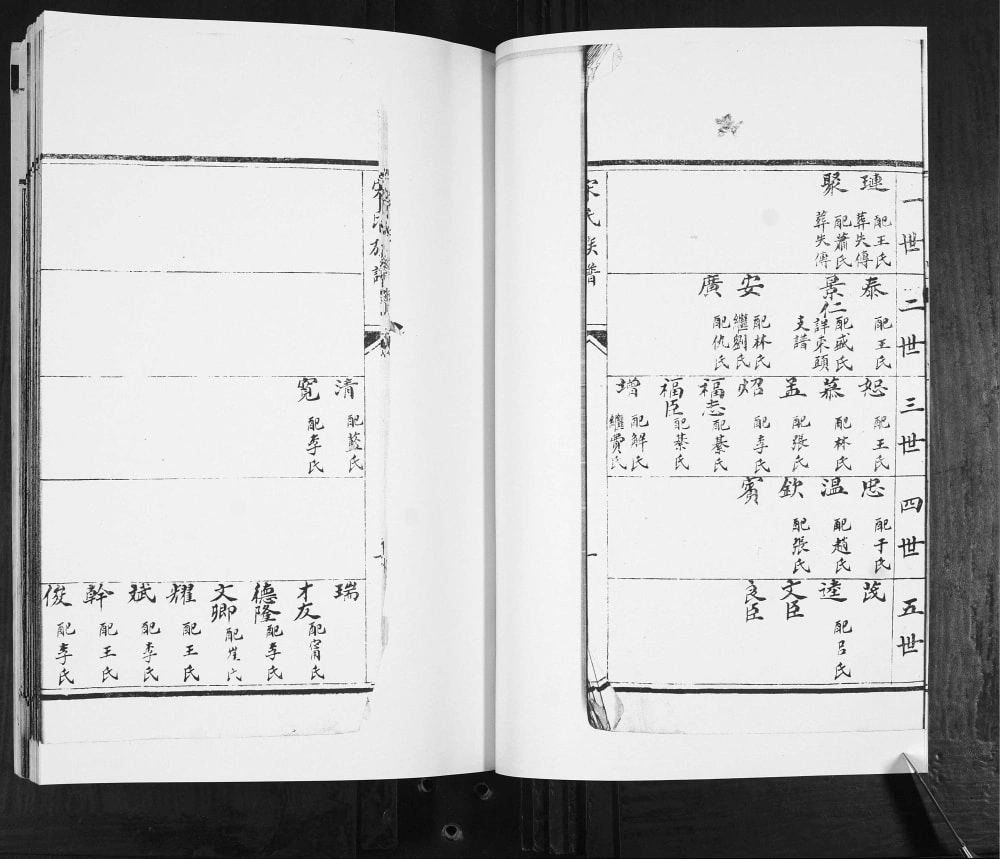 一世
璉
配王氏
葬失傳
聚
配蕭氏
葬失傳
二世
泰
配王氏
景仁
配盛氏
詳東頭
支譜
安
配林氏
繼劉氏
廣
配仇氏
三世
恕
配王氏
慕
配林氏
孟
配張氏
炤
配李氏
福志
配綦氏
福臣
配綦氏
增
配解氏
繼費氏
四世
忠
配于氏
溫
配趙氏
欽
配張氏
賓
五世
茂
逵
配呂氏
文臣
良臣
宋氏族譜
一
宋氏族譜
清
配藍氏
寬
配李氏
瑞
才友
配甯氏
德隆
配李氏
文卿
配崔氏
耀
配王氏
斌
配李氏
幹
配王氏
俊
配李氏